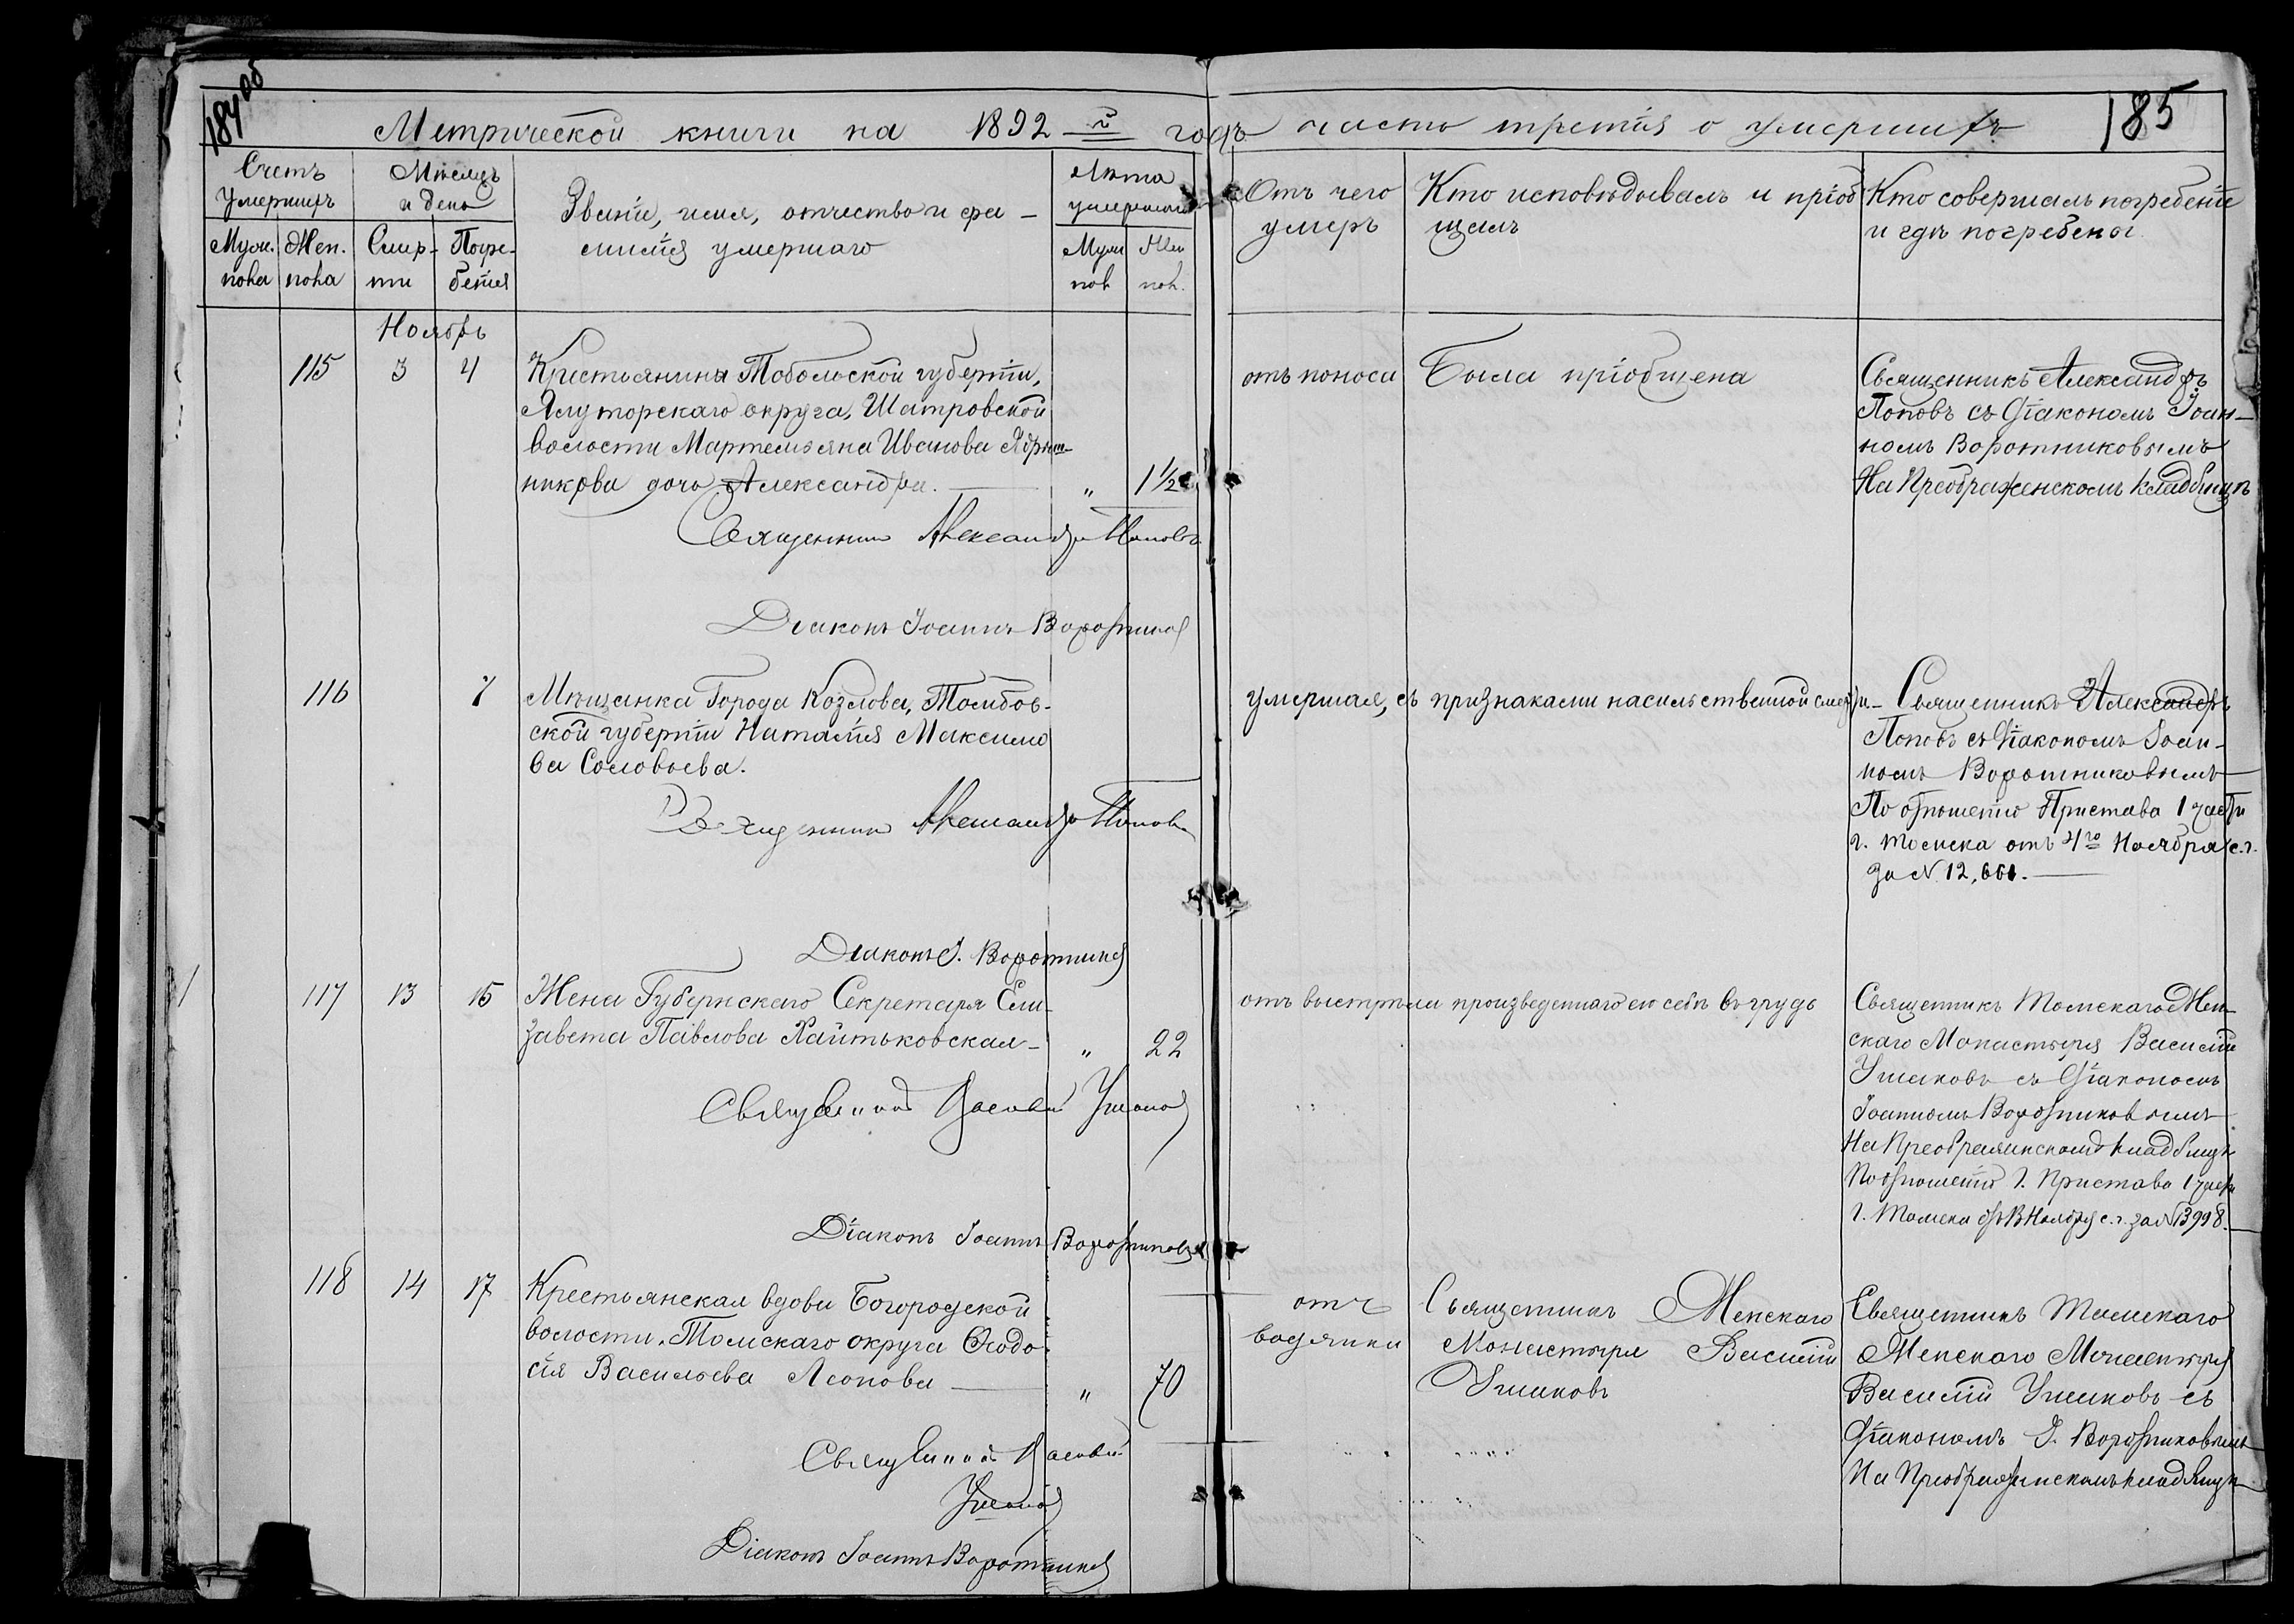 184 об
185
Метрической книги на 1892 й годъ часть третія о умершихъ
Счетъ умершихъ
Мѣсяцъ и день
Званіе, имя, отчество и фа-
милія умершаго
Лѣта умершаго
Отъ чего
умеръ
Кто исповѣдывалъ и пріоб
щалъ
Кто совершалъ погребеніе
и гдѣ погребены
Муж. пола
Жен. пола
Смер-
ти
Погре-
бенія
Муж пол
Жен пол.
Ноябрь
115 3 4
Крестьянина Тобольской губерніи,
Ялуторскаго округа, Шатровской
волости Мартемьяна Иванова
никова дочь Александра.
" 1½
отъ поноса
Была пріобщена
Священникъ Александръ
Поповъ съ Діакономъ Іоан-
номъ Воротниковымъ
На Преображенскомъ кладбищѣ
Священникъ Александръ Поповъ
Діаконъ Іоаннъ Воротниковъ
116 7
Мѣщанка Города Козлова, Тамбов-
ской губерніи Наталія Максимо
ва Соловьева.
умершая, съ признаками насильственной смерти
Священникъ Александръ
Поповъ съ Діакономъ Іоан-
номъ Воротниковымъ
По отношенію Пристава 1 части
г. Томска отъ 4го Ноября с.г.
за N. 12,661.
Священникъ Александръ Поповъ
Діаконъ І. Воротниковъ
117 13 15
Жена Губернскаго Секретаря Ели-
завета Павлова Хайтьковская
" 22
отъ выстрѣла произведеннаго ею себѣ въ грудь
Священникъ Томскаго Жен-
скаго Монастыря Василій
Ушаковъ съ Діакономъ
Іоанномъ Воротниковымъ
На Преображенскомъ кладбищѣ
По отношенію Г. Пристава 1 части
г. Томска отъ 13 Ноября с.г. за N 13998.
Священникъ Василій Ушаковъ
Діаконъ Іоаннъ Воротниковъ
118 14 17
Крестьянская вдова Богородской
волости, Томскаго округа Ѳеодо
сія Васильева Леонова
" 70
отъ
водянки
Священникъ Женскаго
Монастыря Василій
Ушаковъ
Священникъ Томскаго
Женскаго Монастыря
Василій Ушаковъ съ
Діакономъ І. Воротниковымъ
На Преображенскомъ кладбищѣ
Священникъ Василій
Ушаковъ
Діаконъ Іоаннъ Воротниковъ